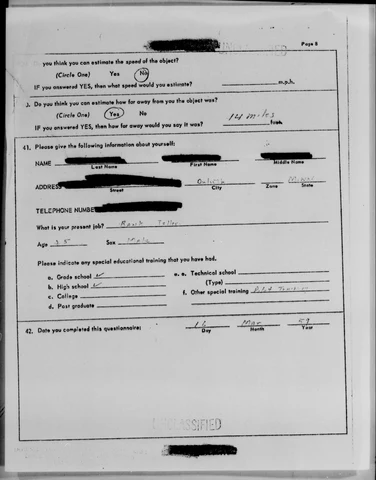 Page 8
UNCLASSIFIED
you think you can estimate the speed of the object?
(Circle One) Yes No
IF you answered YES, then what speed would you estimate? m.p.h.
J. Do you think you can estimate how far away from you the object was?
(Circle One) Yes No
IF you answered YES, then how far away would you say it was? 14 miles feet.
41. Please give the following information about yourself:
NAME
Last Name First Name Middle Name
ADDRESS Duluth
Street City Zone State
TELEPHONE NUMBER
What is your present job? Bank Teller
Age 25 Sex Male
Please indicate any special educational training that you have had.
a. Grade school ✓ e. Technical school
b. High school ✓ (Type)
c. College f. Other special training
d. Post graduate
42. Date you completed this questionnaire: Mar 59
Day Month Year
UNCLASSIFIED